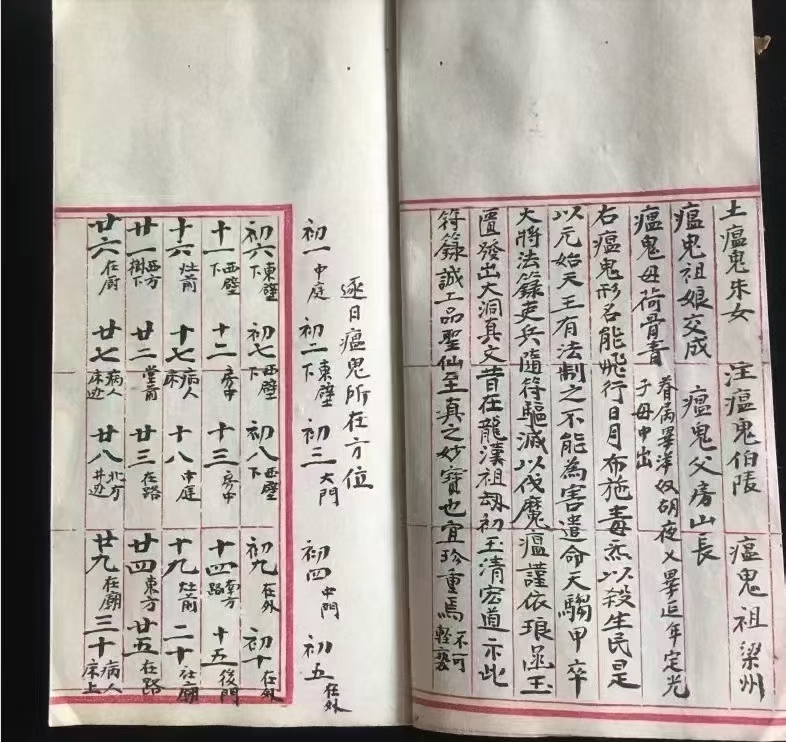 土瘟鬼朱女 注瘟鬼伯陵 瘟鬼祖梁州
瘟鬼祖娘交成 瘟鬼父房山長
瘟鬼母荷骨青 眷属畢洋奴胡夜乂畢近年定光
子母中出
右瘟鬼形名能飛行日月布施毒炁以殺生民是
以元始天王有法制之不能為害遣命天騶甲卒
大將法籙吏兵隨符驅滅以伐魔瘟謹依琅函玉
匱發出大洞真文昔在龍漢祖劫初玉清宏道示此
符籙誠工品聖仙至真之妙寶也宜珍重焉不可輕褻
逐日瘟鬼所在方位
初一中庭 初二東壁下 初三大門 初四中門 初五在外
初六東壁下 初七西壁下 初八西壁下 初九在外 初十在外
十一西壁下 十二房中 十三房中 十四南方路 十五後門
十六灶前 十七病人床 十八中庭 十九灶前 二十社廟
廿一西方樹下 廿二堂前 廿三在路 廿四東方 廿五在路
廿六在厨 廿七病人床边 廿八北方井边 廿九在廟 三十病人床上